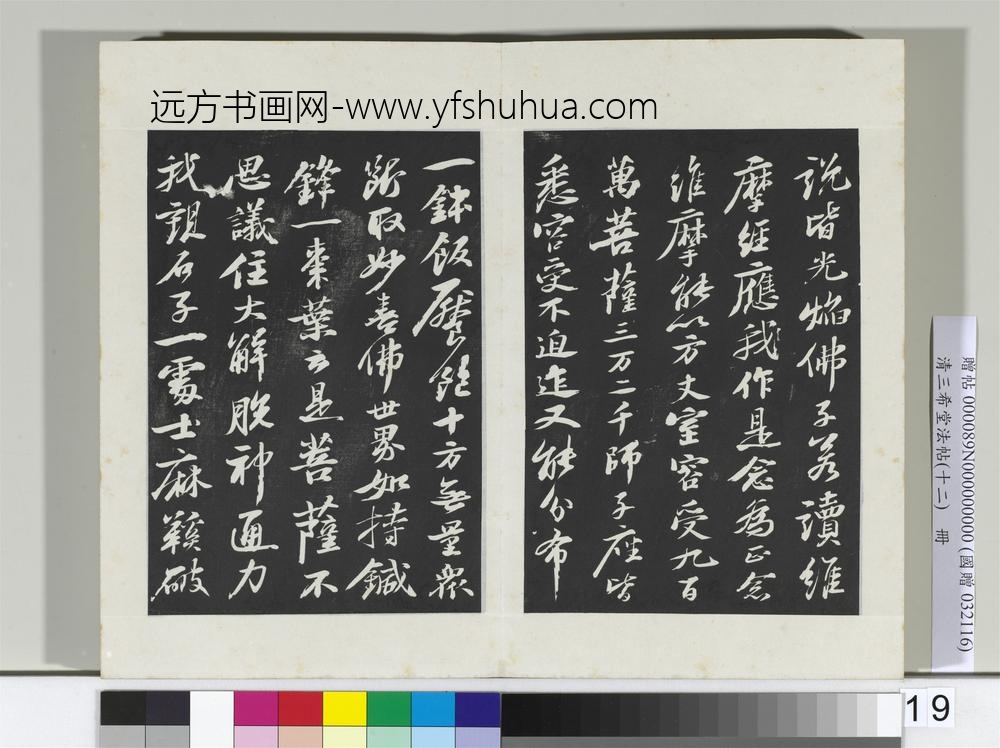 远方书画网-www.yfshuhua.com
説皆光焰佛子若讀維
摩經應我作是念為正念
維摩能以方丈室容受九百
萬菩薩三万二千師子座皆
悉容受不迫迮又能分布
一鉢飯饜飽十方無量衆
斷取妙喜佛世界如持鍼
鋒一棗葉云是菩薩不
思議住大解脱神通力
我觀石子一處士麻鞵破
贈帖 000089N000000000 (國贈 032116)
清三希堂法帖(十二) 冊
19